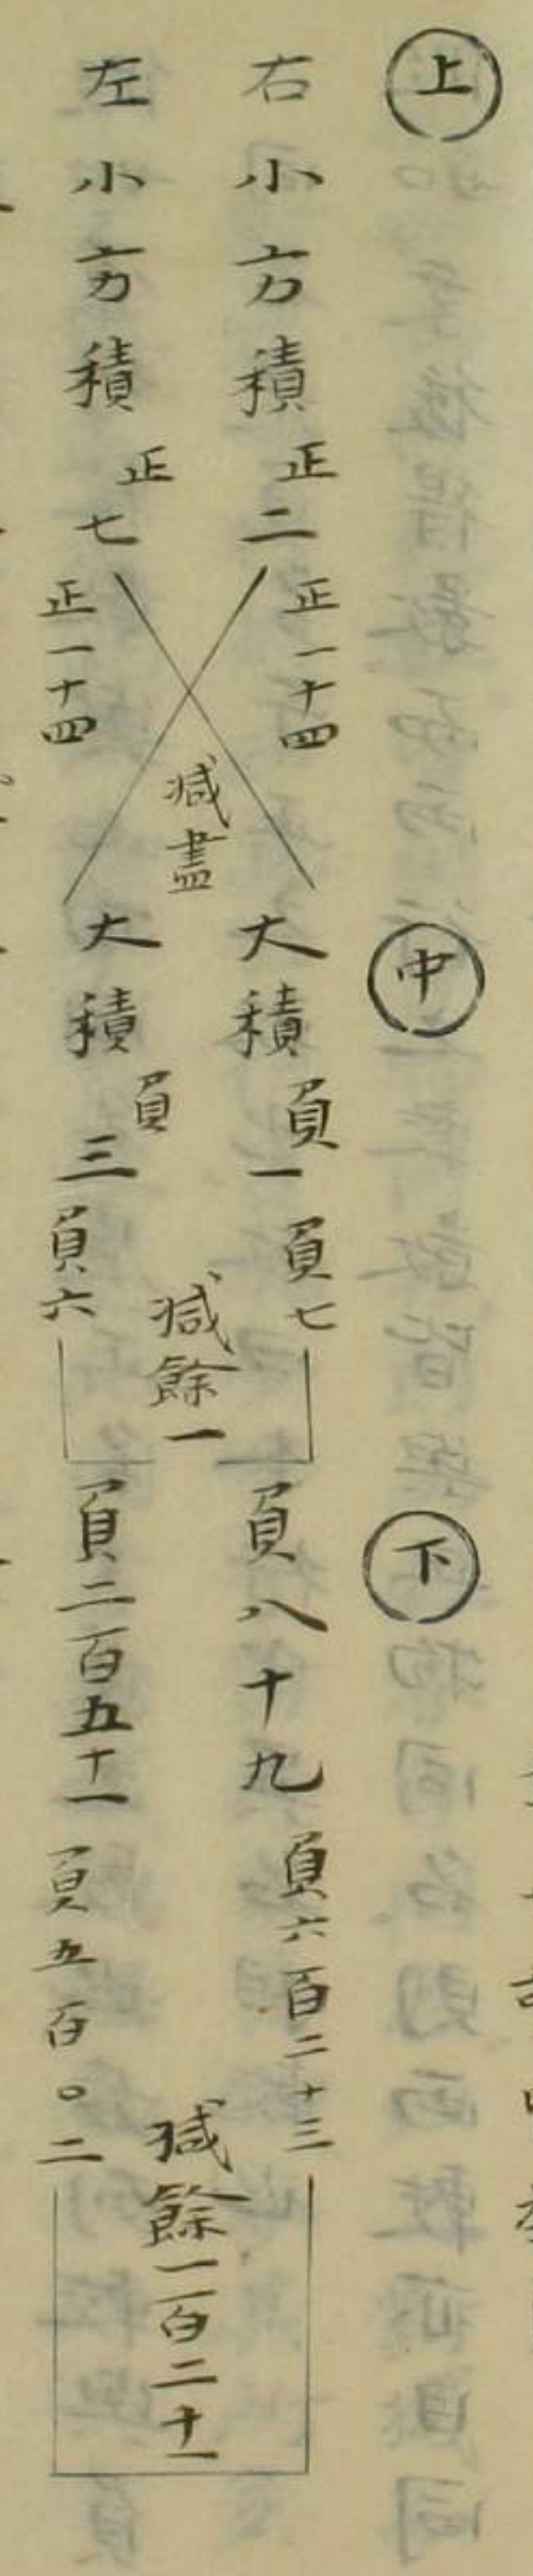 上 中 下
右小方積正二 正一十四 大積負一 負七 負八十九 負六百二十三
減盡 減餘一 減餘一百二十一
左小方積正七 正一十四 大積負三 負六 負二百五十一 負五百〇二